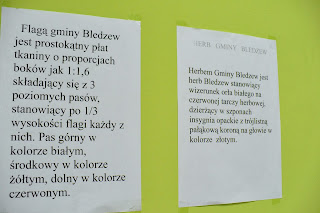 Flagą gminy Bledzew
jest prostokątny płat
tkaniny o proporcjach
boków jak 1:1,6
składający się z 3
poziomych pasów,
stanowiący po 1/3
wysokości flagi każdy z
nich. Pas górny w
kolorze białym,
środkowy w kolorze
żółtym, dolny w kolorze
czerwonym.
HERB GMINY BLEDZEW
Herbem Gminy Bledzew jest
herb Bledzew stanowiący
wizerunek orła białego na
czerwonej tarczy herbowej,
dzierżący w szponach
insygnia opackie z trójlistną
pałąkową koroną na głowie w
kolorze złotym.